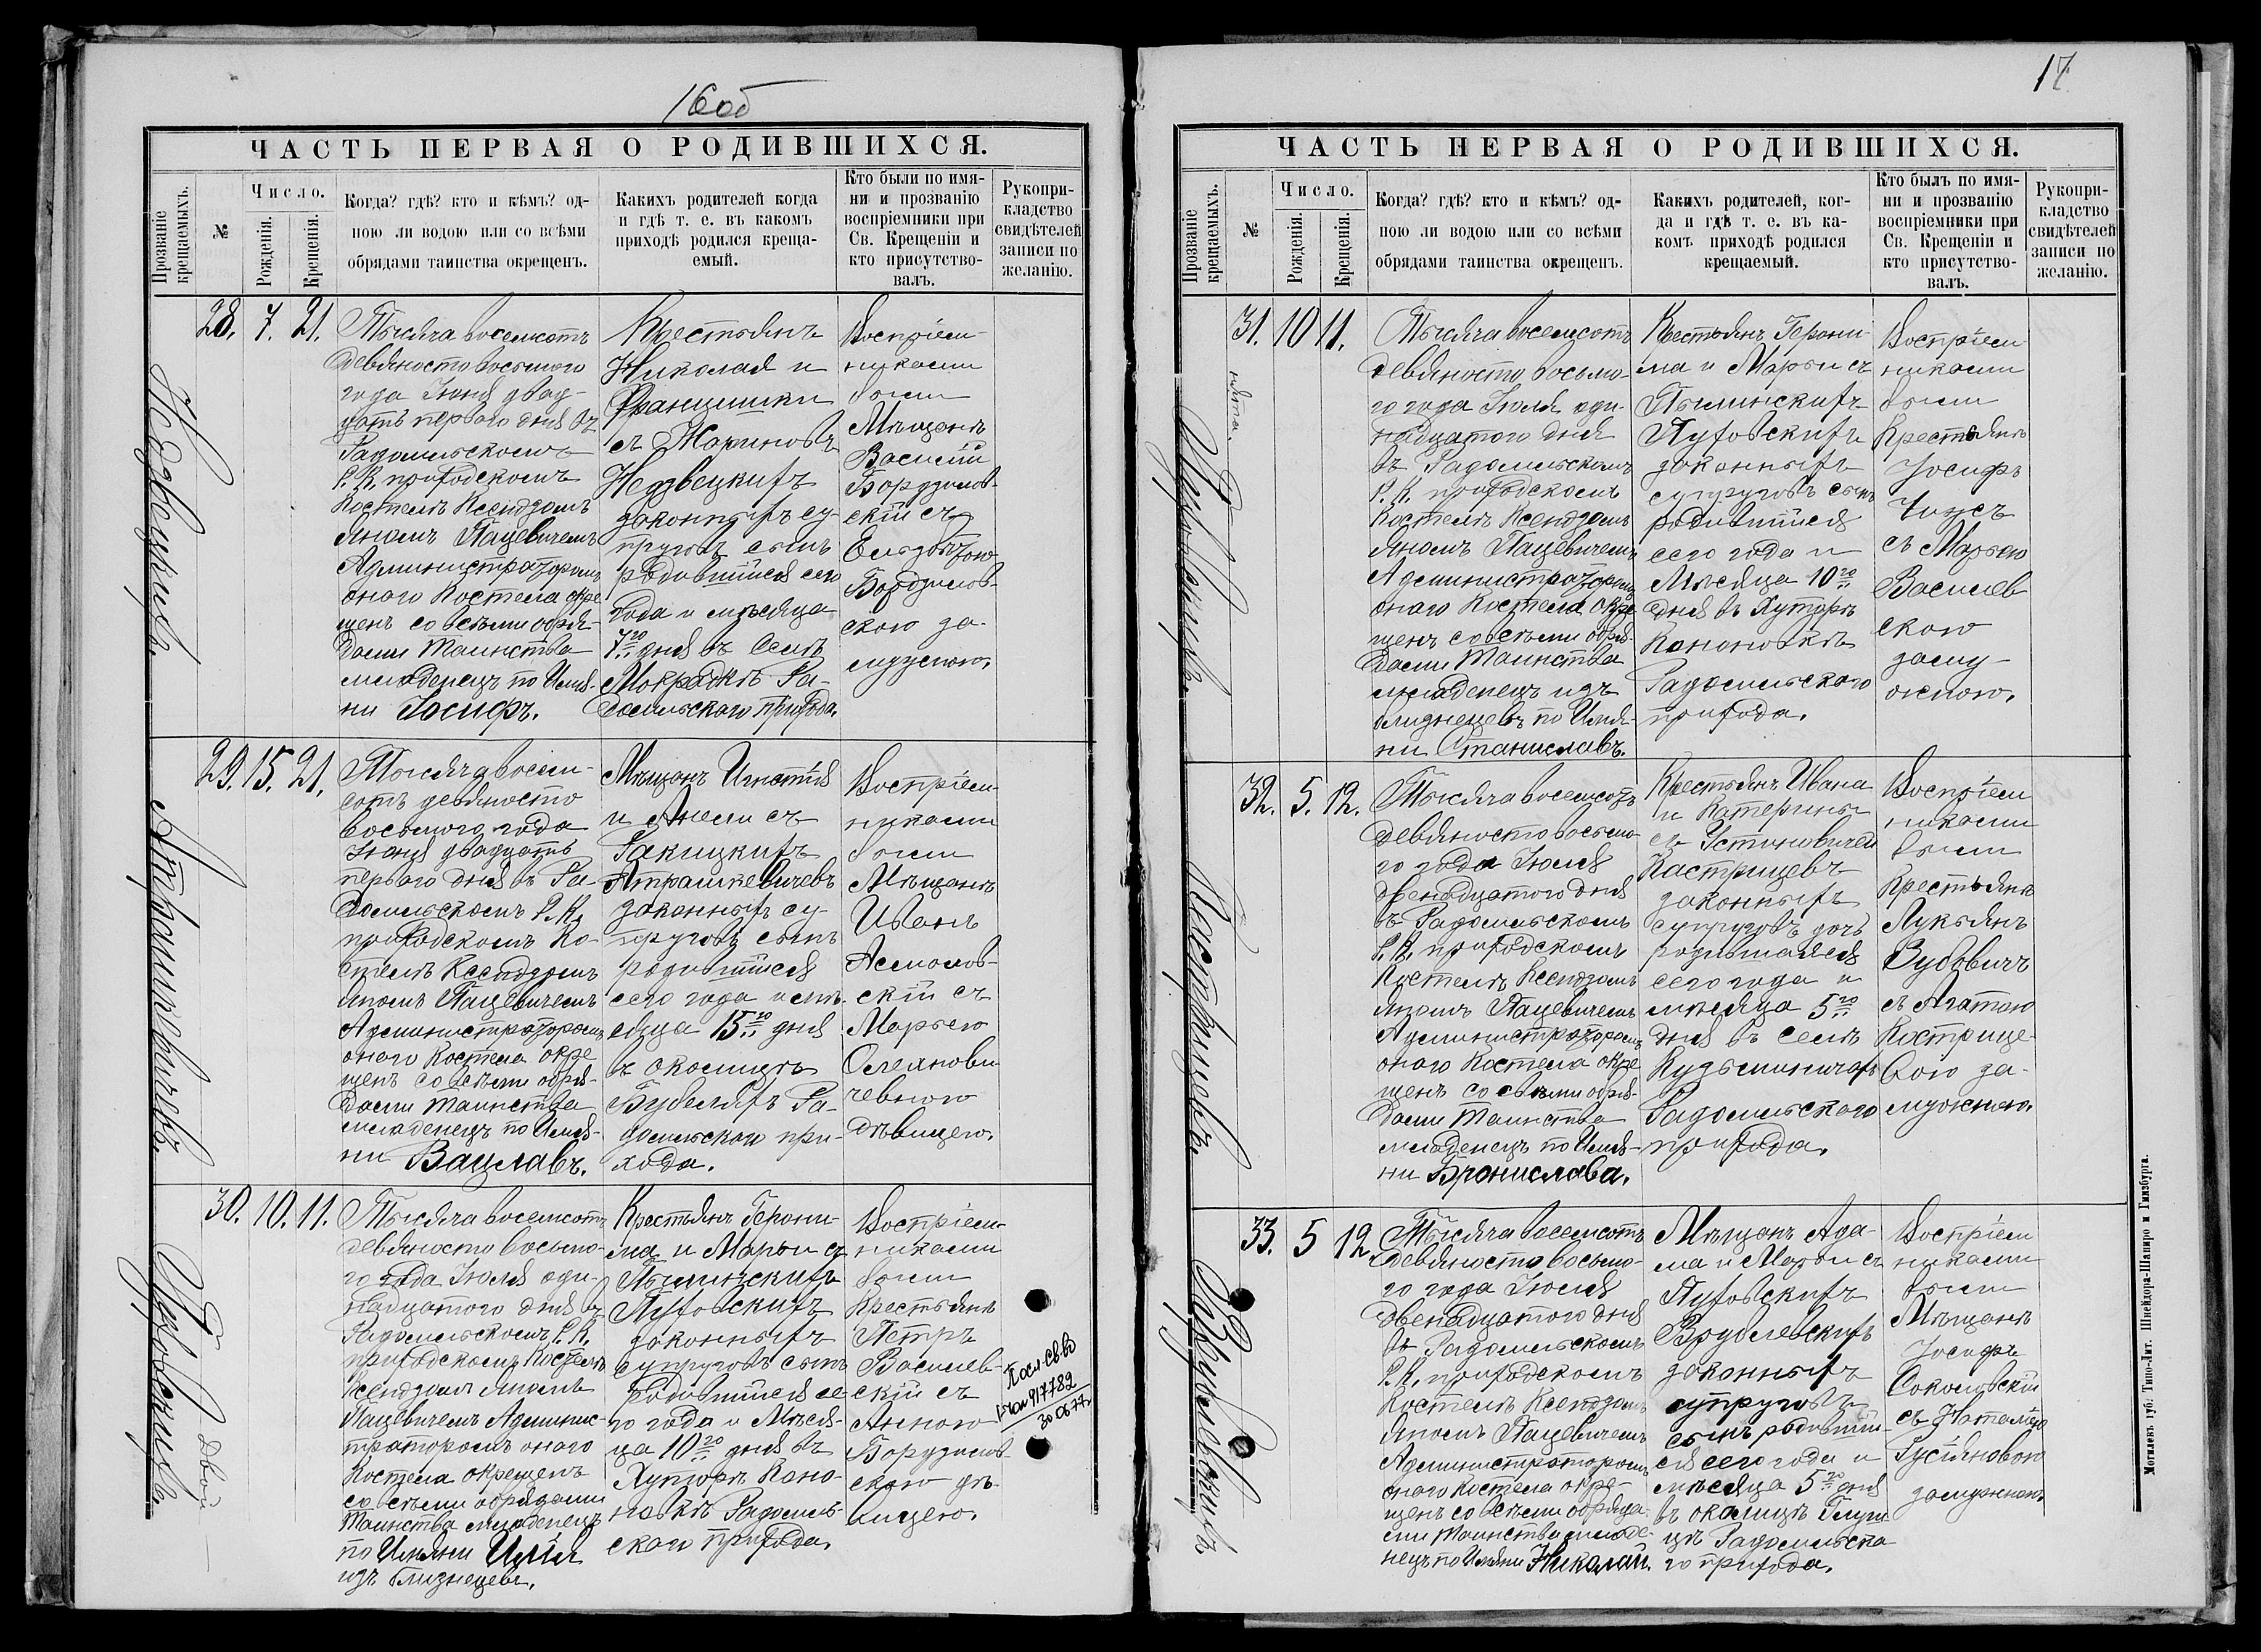 16об
ЧАСТЬ ПЕРВАЯ О РОДИВШИХСЯ.
Прозваніе крещаемыхъ.
№
Число.
Рожденія.
Крещенія.
Когда? гдѣ? кто и кѣмъ? од-
ною ли водою или со всѣми
обрядами таинства окрещенъ.
Какихъ родителей когда
и гдѣ т. е. въ какомъ
приходѣ родился креща-
емый.
Кто были по имя-
ни и прозванію
воспріемники при
Св. Крещеніи и
кто присутство-
валъ.
Рукопри-
кладство
свидѣтелей
записи по
желанію.
Недзвецкихъ.
28. 7. 21.
Тысяча восемсотъ
девяносто восьмого
года Іюня двад-
цать перваго дня въ
Радомльскомъ
Р. К. приходскомъ
Костелѣ Ксендзомъ
Яномъ Пацевичемъ
Администраторомъ
оного Костела окре
щенъ со всѣми обря-
дами Таинства
младенецъ по Имя-
ни Іосифъ.
Крестьянъ
Николая и
Францишки
съ
Недзвецкихъ
законныхъ су-
пруговъ сынъ
родившійся сего
года и мѣсяца
7го дня въ селѣ
Мокрядкѣ Ра-
домльскаго прихода.
Воспріем-
никами
были
Мѣщанъ
Василій
Бордзилов-
скій съ
Бордзилов-
скою за-
мужнею.
Атрашкевичевъ.
29. 15. 21.
Тысяча восем-
сотъ девяносто
восьмого года
Іюня двадцать
перваго дня въ Ра-
домльскомъ Р. К.
приходскомъ Ко-
стелѣ Ксендзомъ
Яномъ Пацевичемъ
Администраторомъ
оного Костела окре
щенъ со всѣми обря-
дами Таинства
младенецъ по Имя-
ни Вацлавъ.
Мѣщанъ Игнатія
и Анели съ
Ракицкихъ
Атрашкевичевъ
законныхъ су-
пруговъ сынъ
родившійся
сего года и мѣ-
сяца 15го дня
въ околицѣ
Бубеляхъ Ра-
домльскаго при-
хода.
Воспріем-
никами
были
Мѣщанъ
Иванъ
Асмолов-
скій съ
Марьею
чевною
дѣвицею.
Пуховскихъ. двой
30. 10. 11.
Тысяча восемсотъ
девяносто восьмо-
го года Іюля оди-
надцатого дня въ
Радомльскомъ Р. К.
приходскомъ Костелѣ
Ксендзомъ Яномъ
Пацевичемъ Админис-
траторомъ оного
Костела окрещенъ
со всѣми обрядами
Таинства младенецъ
по Имяни Илія
изъ близнецевъ.
Крестьянъ Герони-
ма и Марьи съ
Пылинскихъ
Пуховскихъ
законныхъ
супруговъ сынъ
родившійся се-
го года и Мѣся-
ца 10го дня въ
Хуторѣ Коно-
новкѣ Радомль-
скаго прихода.
Воспріем-
никами
были
Крестьянъ
Петръ
Василев-
скій съ
Анною
Бордзилов-
скою дѣ-
вицею.
917782
17
ЧАСТЬ ПЕРВАЯ О РОДИВШИХСЯ.
Прозваніе крещаемыхъ.
№
Число.
Рожденія.
Крещенія.
Когда? гдѣ? кто и кѣмъ? од-
ною ли водою или со всѣми
обрядами таинства окрещенъ.
Какихъ родителей, ког-
да и гдѣ т. е. въ ка-
комъ приходѣ родился
крещаемый.
Кто былъ по имя-
ни и прозванію
воспріемники при
Св. Крещеніи и
кто присутство-
валъ.
Рукопри-
кладство
свидѣтелей
записи по
желанію.
нята. Пуховскихъ.
31. 10 11.
Тысяча восемсотъ
девяносто восьмо-
го года Іюля оди-
надцатого дня
въ Радомльскомъ
Р. К. приходскомъ
Костелѣ Ксендзомъ
Яномъ Пацевичемъ
Администраторомъ
оного Костела окре
щенъ со всѣми обря-
дами Таинства
младенецъ изъ
близнецевъ по Имя-
ни Станиславъ.
Крестьянъ Герони-
ма и Марьи съ
Пылинскихъ
Пуховскихъ
законныхъ
супруговъ сынъ
родившійся
сего года и
Мѣсяца 10го
дня въ Хуторѣ
Кононовкѣ
Радомльскаго
прихода.
Воспріем
никами
были
Крестьянъ
Іосифъ
Чижъ
съ Марьею
Василев
скою
заму-
жнею.
Кастрицевъ.
32. 5. 12.
Тысяча восемсотъ
девяносто восьмо-
го года Іюля
двенадцатого дня
въ Радомльскомъ
Р. К. приходскомъ
Костелѣ Ксендзомъ
Яномъ Пацевичемъ
Администраторомъ
оного Костела окре
щенъ со всѣми обря-
дами Таинства
младенецъ по Имя-
ни Бронислава.
Крестьянъ Ивана
и Катерины
съ Устиновичей
Кастрицевъ
законныхъ
супруговъ дочь
родившаяся
сего года и
мѣсяца 5го
дня въ селѣ
Кузьминичахъ
Радомльскаго
прихода.
Воспріем
никами
были
Крестьянъ
Лукьянъ
Зубовичъ
съ Агатою
Кострице-
вою за-
мужнею.
Врублевскихъ
33. 5 12.
Тысяча восемсотъ
девяносто восьмо-
го года Іюля
двенадцатого дня
въ Радомльскомъ
Р. К. приходскомъ
Костелѣ Ксендзомъ
Яномъ Пацевичемъ
Администраторомъ
оного Костела окре-
щенъ со всѣми обряда-
ми Таинства младе-
нецъ по Имяни Николай.
Мѣщанъ Ада-
ма и Марьи съ
Пуховскихъ
Врублевскихъ
законныхъ
супруговъ
сынъ родивший-
ся сего года и
мѣсяца 5го дня
въ околицѣ
цѣ Радомльска
го прихода.
Воспріем
никами
были
Мѣщанъ
Іосифъ
Соколовскій
съ Наталіею
замужнею.
Могилевъ губ. Типо-Лит. Шнейдора-Шапиро и Гинзбурга.